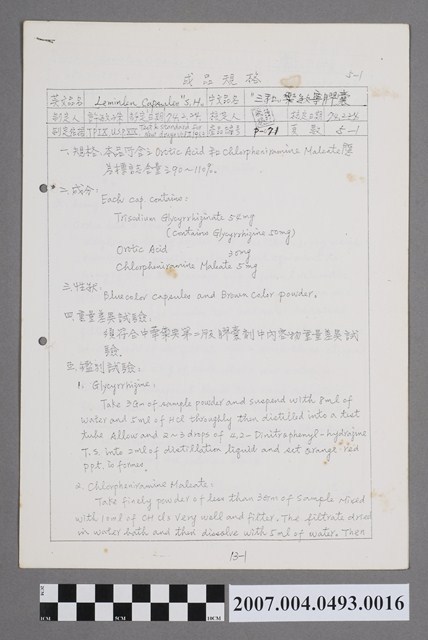 成品規格
5-1
英文品名 Leminlon Capsules "S.H. 中文品名 "三和 膠囊
制定人 制定日期 74.2.24. 核定人 核定日期 74.2.24
制定依據 TP IX, USP XX 產品編號 P-71 頁數 5-1
一.規格:本品可含之Orotic Acid和Chlorpheniramine Maleate應
為標誌含量之90~110%.
二.成分:
Each cap. contains:
Trisodium Glycyrrhizinate 54mg
(Contains Glycyrrhizine 50mg)
Orotic Acid 30mg
Chlorpheniramine Maleate 5mg
三.性狀:
Blue color capsules and Brown color powder.
四.重量差異試驗:
須符合中華藥典第二版膠囊劑中內容物重量差異試
驗.
五.鑑別試驗:
1. Glycyrrhizine:
Take 3Gm of sample powder and suspend with 8ml of
water and 5ml of HCl throughly then distilled into a test
tube. Allow and 2~3 drops of 2,2-Dinitrophenyl-hydrazine
T.S. into 2ml of distillation liquid and set orange-red
ppt. is formed.
2. Chlorpheniramine Maleate:
Take finely powder of less than 3Gm of sample mixed
with 10ml of CHCl3 very well and filter. The filtrate dried
in water bath and then dissolve with 5ml of water. Then
13-1
2007.004.0493.0016